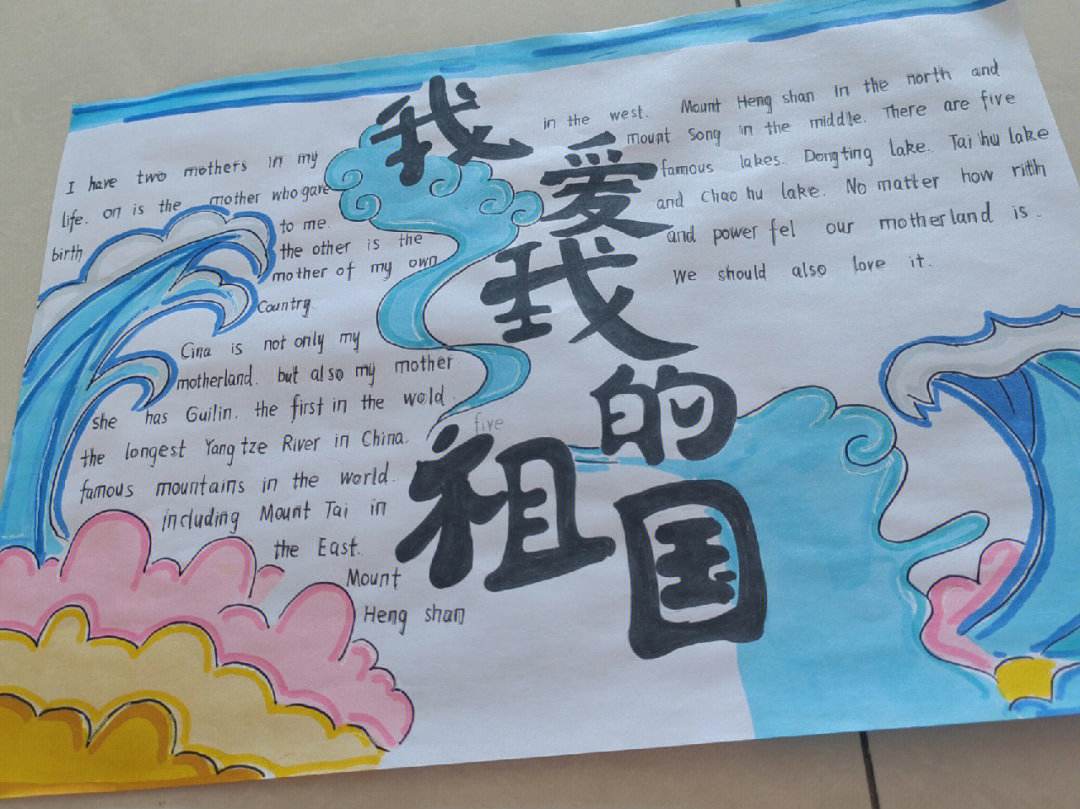 我爱我的祖国
I have two mothers in my
life. on is the mother who gave
birth to me.
the other is the
mother of my own
Country.
Cina is not only my
motherland. but also my mother
she has Guilin. the first in the wold.
the longest Yang tze River in China. five
famous mountains in the world.
including Mount Tai in
the East.
Mount
Heng shan
in the west. Mount Heng shan in the north and
mount Song in the middle. There are five
famous lakes. Dongting lake. Tai hu lake
and Chao hu lake. No matter how rith
and power fel our motherland is.
We should also love it.